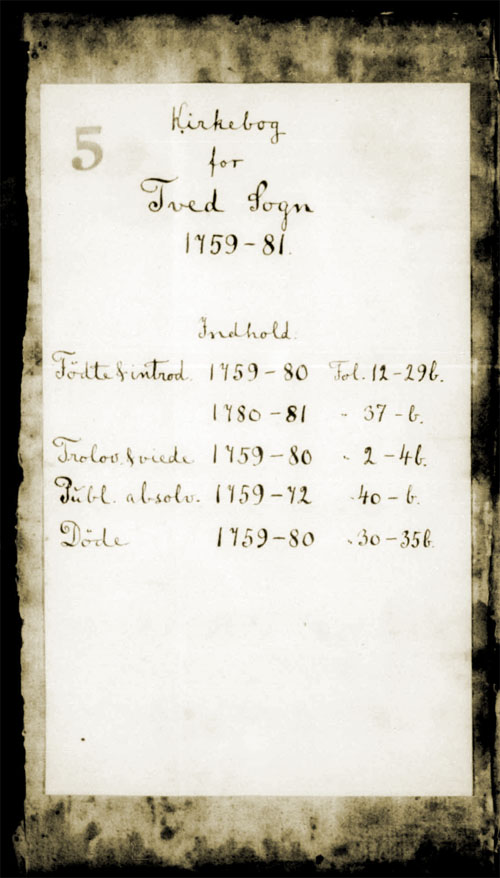 5
Kirkebog
for
Tved Sogn
1759-81.
Indhold.
Födte & introd. 1759-80 Fol. 12-29b.
1780-81 " 37-b.
Trolov. & viede 1759-80 " 2-4b.
Publ. absolv. 1759-72 " 40-b.
Döde 1759-80 " 30-35b.